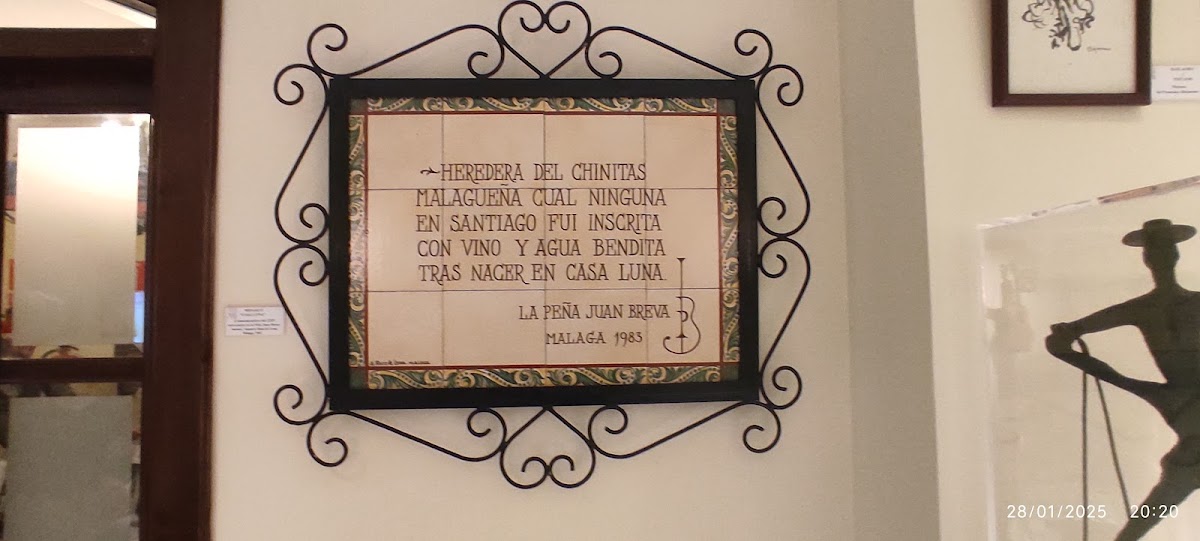 HEREDERA DEL CHINITAS
MALAGUEÑA CUAL NINGUNA
EN SANTIAGO FUI INSCRITA
CON VINO Y AGUA BENDITA
TRAS NACER EN CASA LUNA.
LA PEÑA JUAN BREVA
MALAGA 1983
28/01/2025 20:20